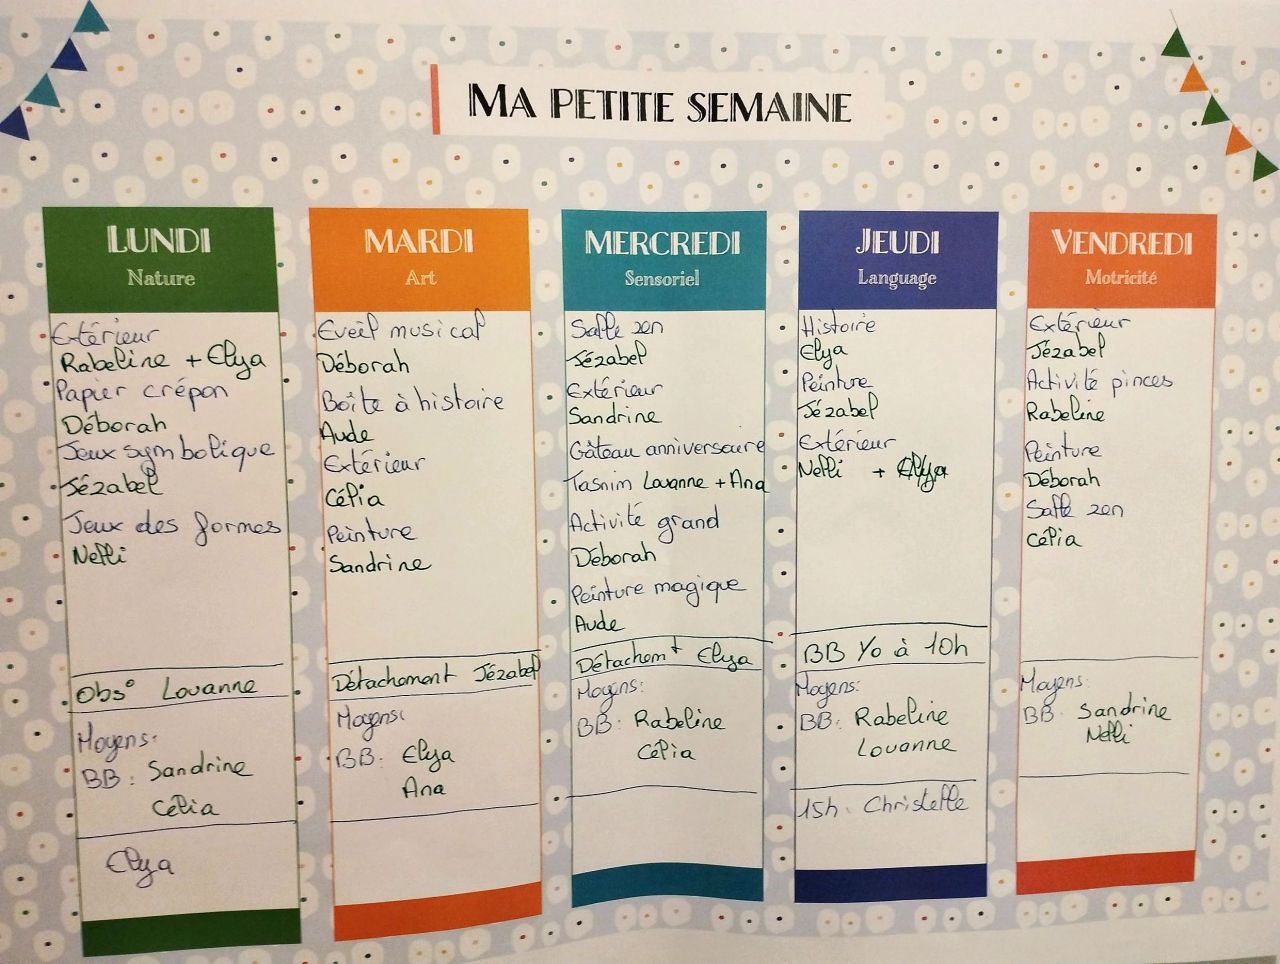 MA PETITE SEMAINE
LUNDI
Nature
Extérieur
Rabeline + Elya
Papier crépon
Déborah
Jeux symbolique
Jézabel
Jeux des formes
Nelli
Obs° Louanne
Moyens:
BB: Sandrine
Célia
Elya
MARDI
Art
Eveil musical
Déborah
Boîte à histoire
Aude
Extérieur
Célia
Peinture
Sandrine
Détachement Jézabel
Moyens:
BB: Elya
Ana
MERCREDI
Sensoriel
Salle zen
Jézabel
Extérieur
Sandrine
Gâteau anniversaire
Tasnim Louanne + Ana
Activité grand
Déborah
Peinture magique
Aude
Détachemt Elya
Moyens:
BB: Rabeline
Célia
JEUDI
Language
Histoire
Elya
Peinture
Jézabel
Extérieur
Nelli + Elya
BB Yo à 10h
Moyens:
BB: Rabeline
Louanne
15h: Christelle
VENDREDI
Motricité
Extérieur
Jézabel
Activité pinces
Rabeline
Peinture
Déborah
Salle zen
Célia
Moyens:
BB: Sandrine
Nelli